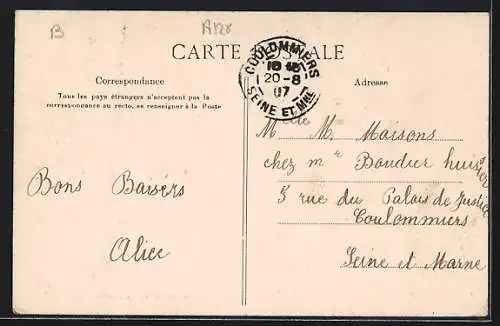 B
CARTE POSTALE
COULOMMIERS
20-8
07
SEINE ET MNE
Correspondance
Tous les pays étrangers n'acceptent pas la
correspondance au recto, se renseigner à la Poste
Adresse
Bons Baisers
Alice
Melle M. Maisons
chez mr Boudier huissier
5 rue du Palais de Justice
Coulommiers
Seine et Marne